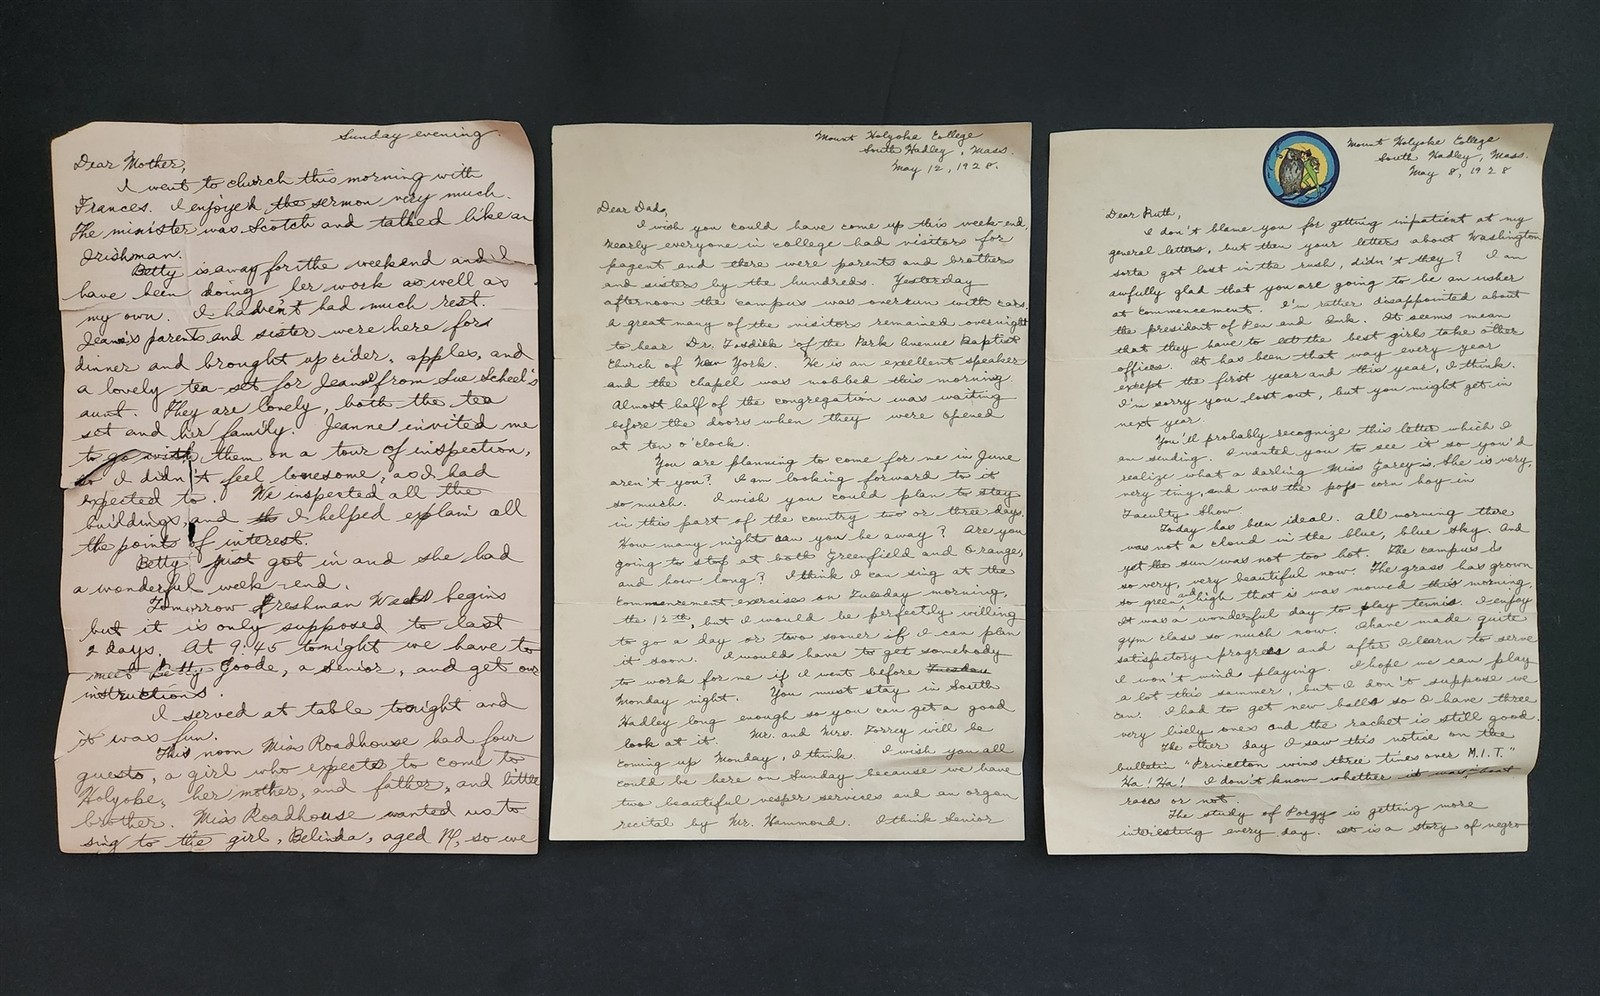 Sunday evening.
Dear Mother,
I went to church this morning with
Frances. I enjoyed the sermon very much.
The minister was Scotch and talked like an
Irishman.
Betty is away for the weekend and I
have been doing her work as well as
my own. I haven't had much rest.
Jeanne's parents and sister were here for
dinner and brought up cider, apples, and
a lovely tea-set for Jeanne from Sue Scheel's
aunt. They are lovely, both the tea
set and her family. Jeanne invited me
to go with them on a tour of inspection,
so I didn't feel lonesome, as I had
expected to. We inspected all the
buildings, and I helped explain all
the points of interest.
Betty just got in and she had
a wonderful week-end.
Tomorrow Freshman Week begins
but it is only supposed to last
2 days. At 9:45 tonight we have to
meet Betty Goode, a senior, and get our
instructions.
I served at table tonight and
it was fun.
This noon Miss Roadhouse had four
guests, a girl who expects to come to
Holyoke, her mother, and father, and little
brother. Miss Roadhouse wanted us to
sing to the girl, Belinda, aged 14, so we
Mount Holyoke College
South Hadley, Mass.
May 12, 1928.
Dear Dad,
I wish you could have come up this week-end.
Nearly everyone in college had visitors for
pagent and there were parents and brothers
and sisters by the hundreds. Yesterday
afternoon the campus was overrun with cars.
A great many of the visitors remained overnight
to hear Dr. Fosdick of the Park Avenue Baptist
Church of New York. He is an excellent speaker
and the chapel was mobbed this morning.
Almost half of the congregation was waiting
before the doors when they were opened
at ten o'clock.
You are planning to come for me in June
aren't you? I am looking forward to it
so much. I wish you could plan to stay
in this part of the country two or three days.
How many nights can you be away? Are you
going to stop at both Greenfield and Orange,
and how long? I think I can sing at the
Commencement exercises on Tuesday morning,
the 12th, but I would be perfectly willing
to go a day or two sooner if I can plan
it soon. I would have to get somebody
to work for me if I went before Tuesday
Monday night. You must stay in South
Hadley long enough so you can get a good
look at it. Mr. and Mrs. Torrey will be
coming up Monday, I think. I wish you all
could be here on Sunday because we have
two beautiful vesper services and an organ
recital by Mr. Hammond. I think Senior
Mount Holyoke College
South Hadley, Mass.
May 8, 1928
Dear Ruth,
I don't blame you for getting impatient at my
general letters, but then your letters about Washington
sorta got lost in the rush, didn't they? I am
awfully glad that you are going to be an usher
at Commencement. I'm rather disappointed about
the president of Pen and Ink. It seems mean
that they have to let the best girls take other
offices. It has been that way every year
except the first year and this year, I think.
I'm sorry you lost out, but you might get in
next year.
You'll probably recognize this letter which I
am sending. I wanted you to see it so you'd
realize what a darling Miss Garey is. She is very,
very tiny, and was the pop-corn boy in
Faculty Show.
Today has been ideal. All morning there
was not a cloud in the blue, blue sky. And
yet the sun was not too hot. The campus is
so very, very beautiful now. The grass has grown
so green and high that is was mowed this morning.
It was a wonderful day to play tennis. I enjoy
gym class so much now. I have made quite
satisfactory progress and after I learn to serve
I won't mind playing. I hope we can play
a lot this summer, but I don't suppose we
can. I had to get new balls so I have three
very lively ones and the racket is still good.
The other day I saw this notice on the
bulletin "Princeton wins three times over M.I.T."
Ha! Ha! I don't know whether it was boat
races or not.
The study of Porgy is getting more
interesting every day. It is a story of negro